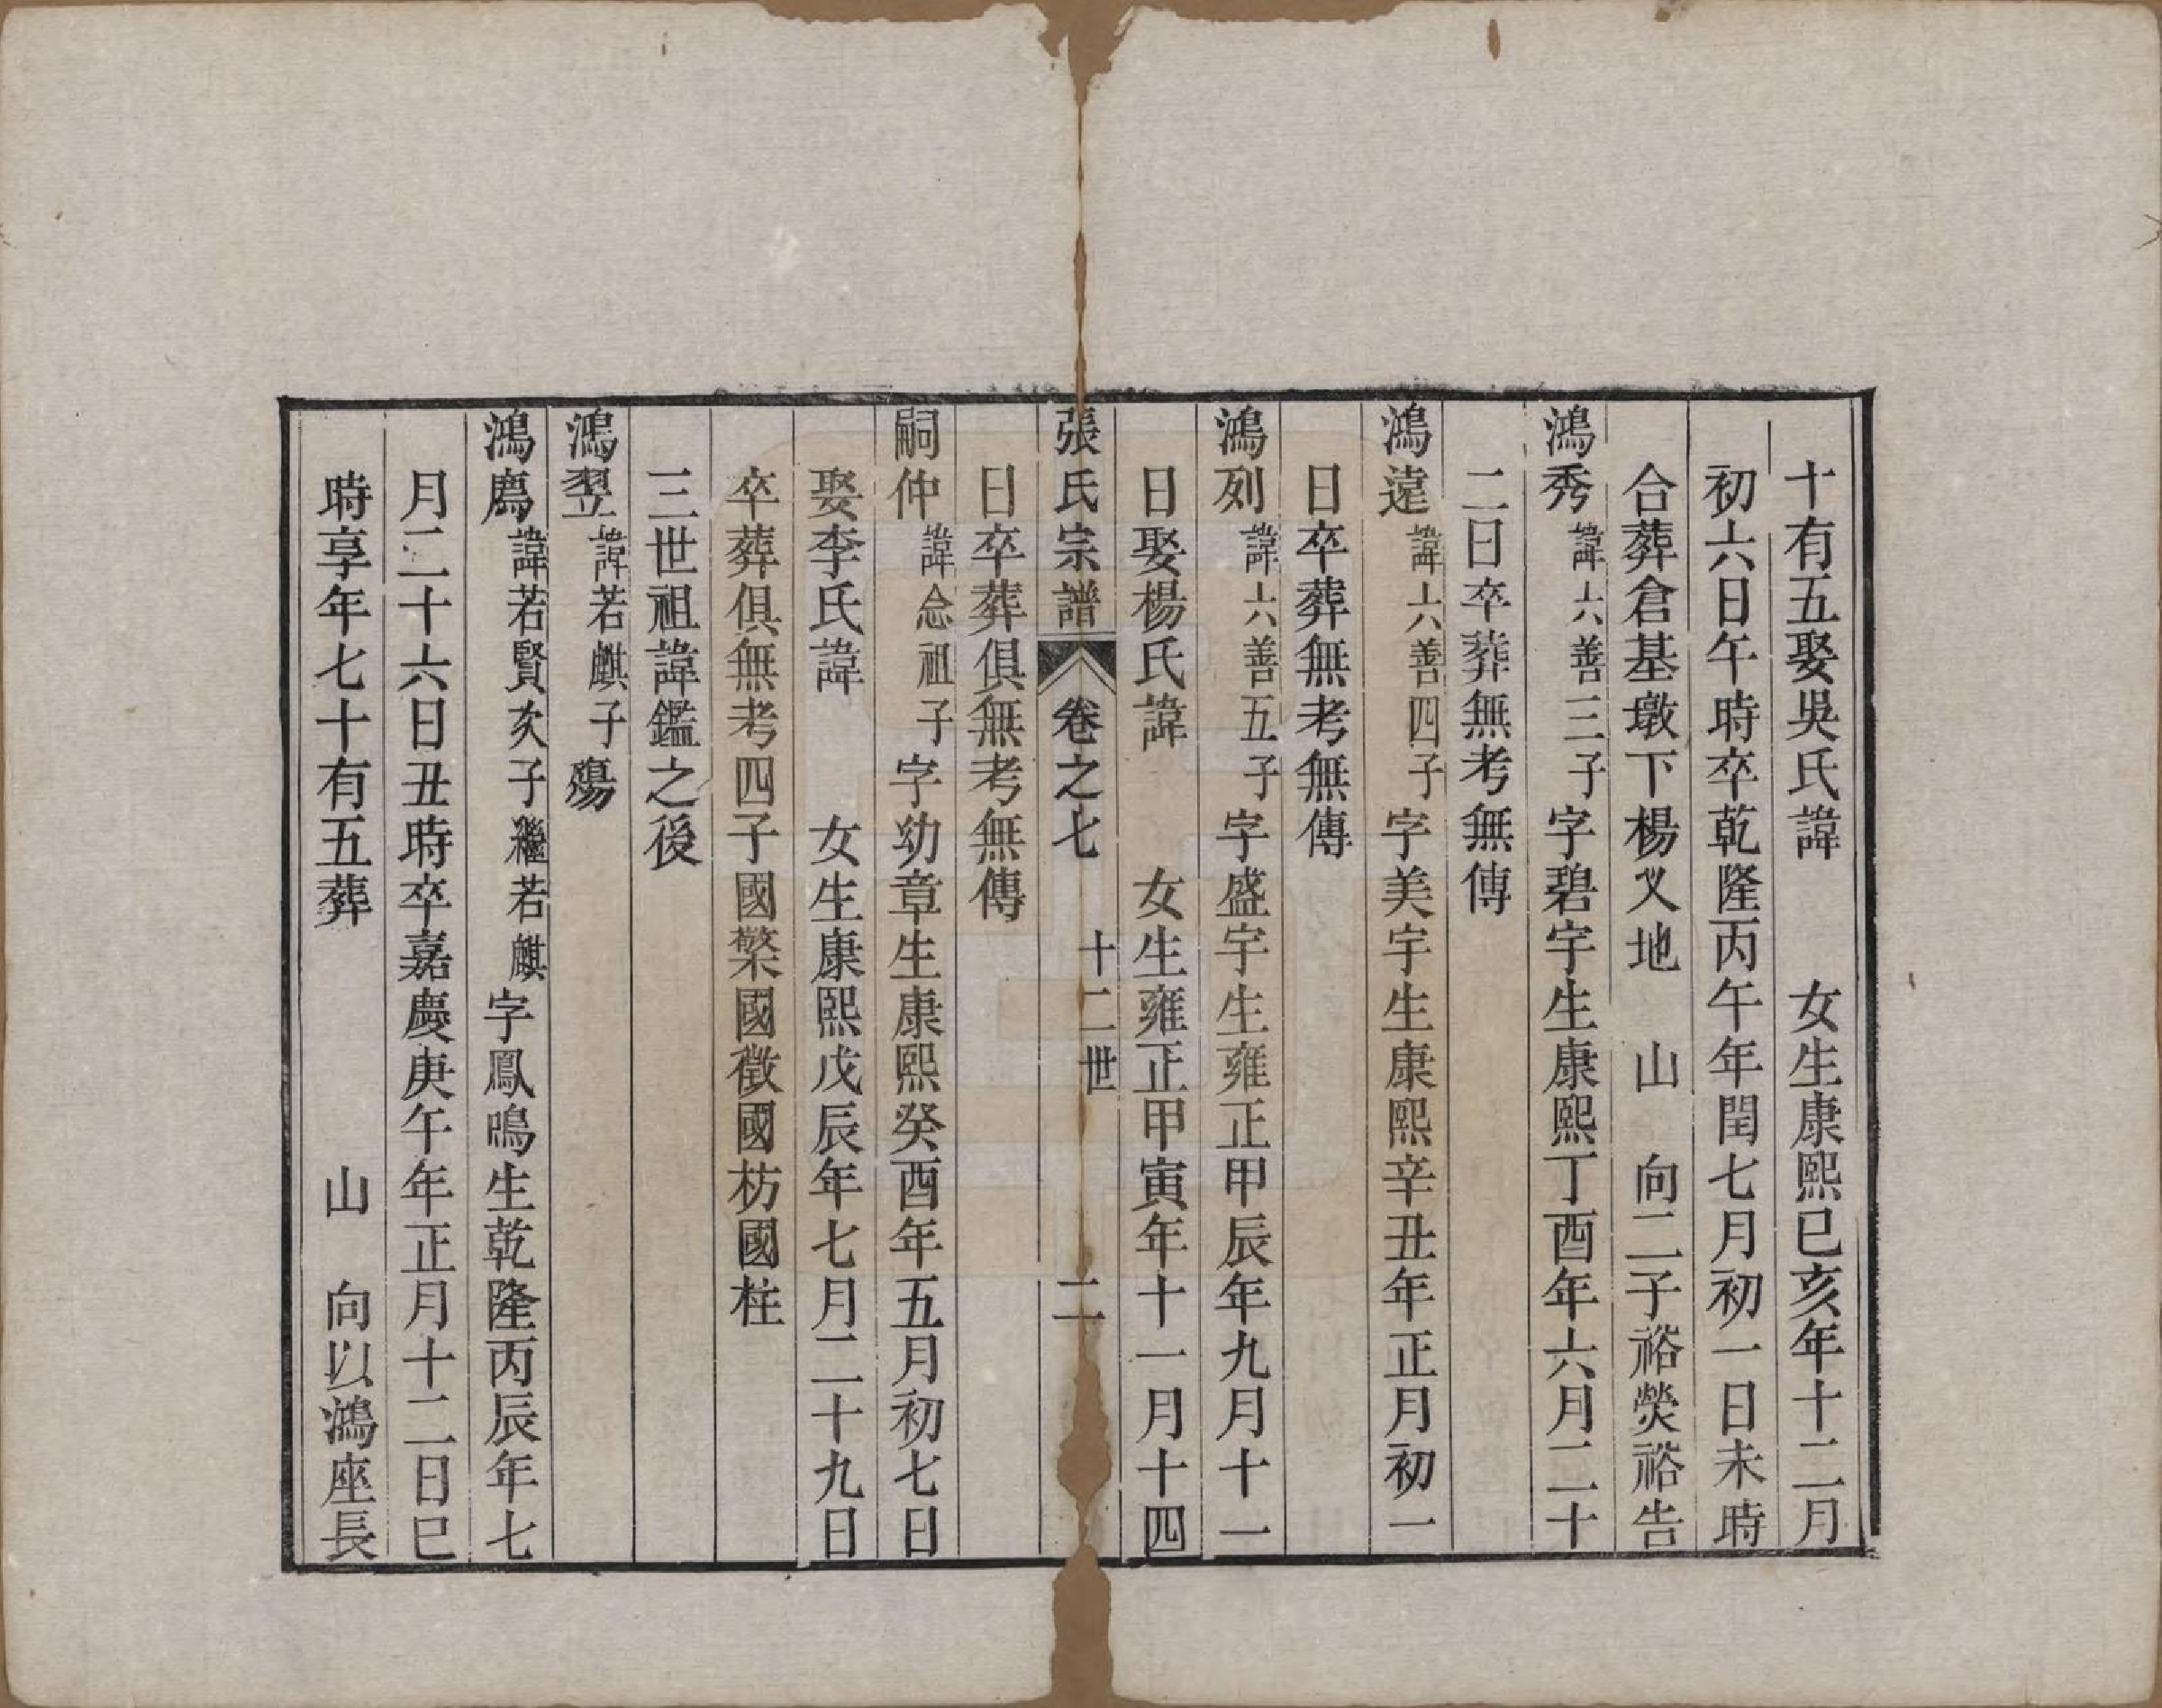 十有五娶吳氏諱　　女生康熙已亥年十二月
初六日午時卒乾隆丙午年閏七月初一日未時
合葬倉基墩下楊义地　山　向二子裕熒裕告
鴻秀諱六善三子字碧宇生康熙丁酉年六月二十
二日卒葬無考無傳
鴻遠諱六善四子字美宇生康熙辛丑年正月初一
日卒葬無考無傳
鴻列諱六善五子字盛宇生雍正甲辰年九月十一
日娶楊氏諱　　女生雍正甲寅年十一月十四
張氏宗譜　卷之七　十二世　二
日卒葬俱無考無傳
嗣仲諱念祖子字幼章生康熙癸酉年五月初七日
娶李氏諱　　女生康熙戊辰年七月二十九日
卒葬俱無考四子國棨國徵國枋國柱
三世祖諱鑑之後
鴻翌諱若麒子殤
鴻鷹諱若賢次子繼若麒字鳳鳴生乾隆丙辰年七
月二十六日丑時卒嘉慶庚午年正月十二日巳
時享年七十有五葬　　　　山　向以鴻座長